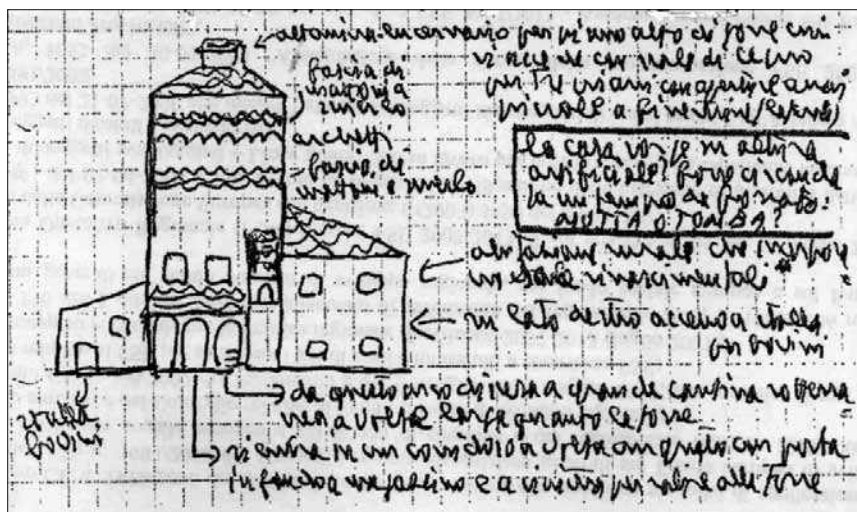 altana in cui per piano alto di torre cui
si accede con scale di legno
per tre piani con aperture assai
piccole a finestrine
fascia di
mattoni a
archetti
fascia di
mattoni e
la casa sorge in altura
artificiale? forse circondata
la un tempo da fossato.
MOTTA O TOMBA?
abitazione rurale che
in stile rinascimentale*
in lato destro accesso a stalla
per bovini
stalla
bovini
da questo arco discesa a grande cantina sotterra
nea a volte larga quanto la torre
si entra in un corridoio a volta con porta
in fondo a magazzino e a sinistra per salire alla torre